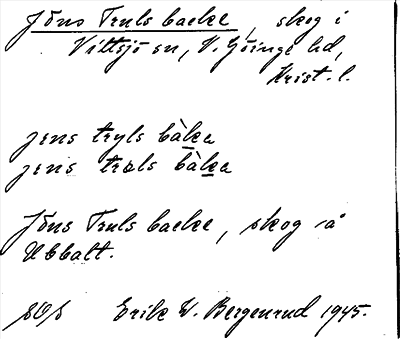 Jöns Truls backe, skog i
Vittsjö sn, V. Göinge hd,
Krist. l.
jens tryls bàka
jens trəls bàka
Jöns Truls backe, skog å
Ubbalt.
Erik W. Bergenrud 1945.